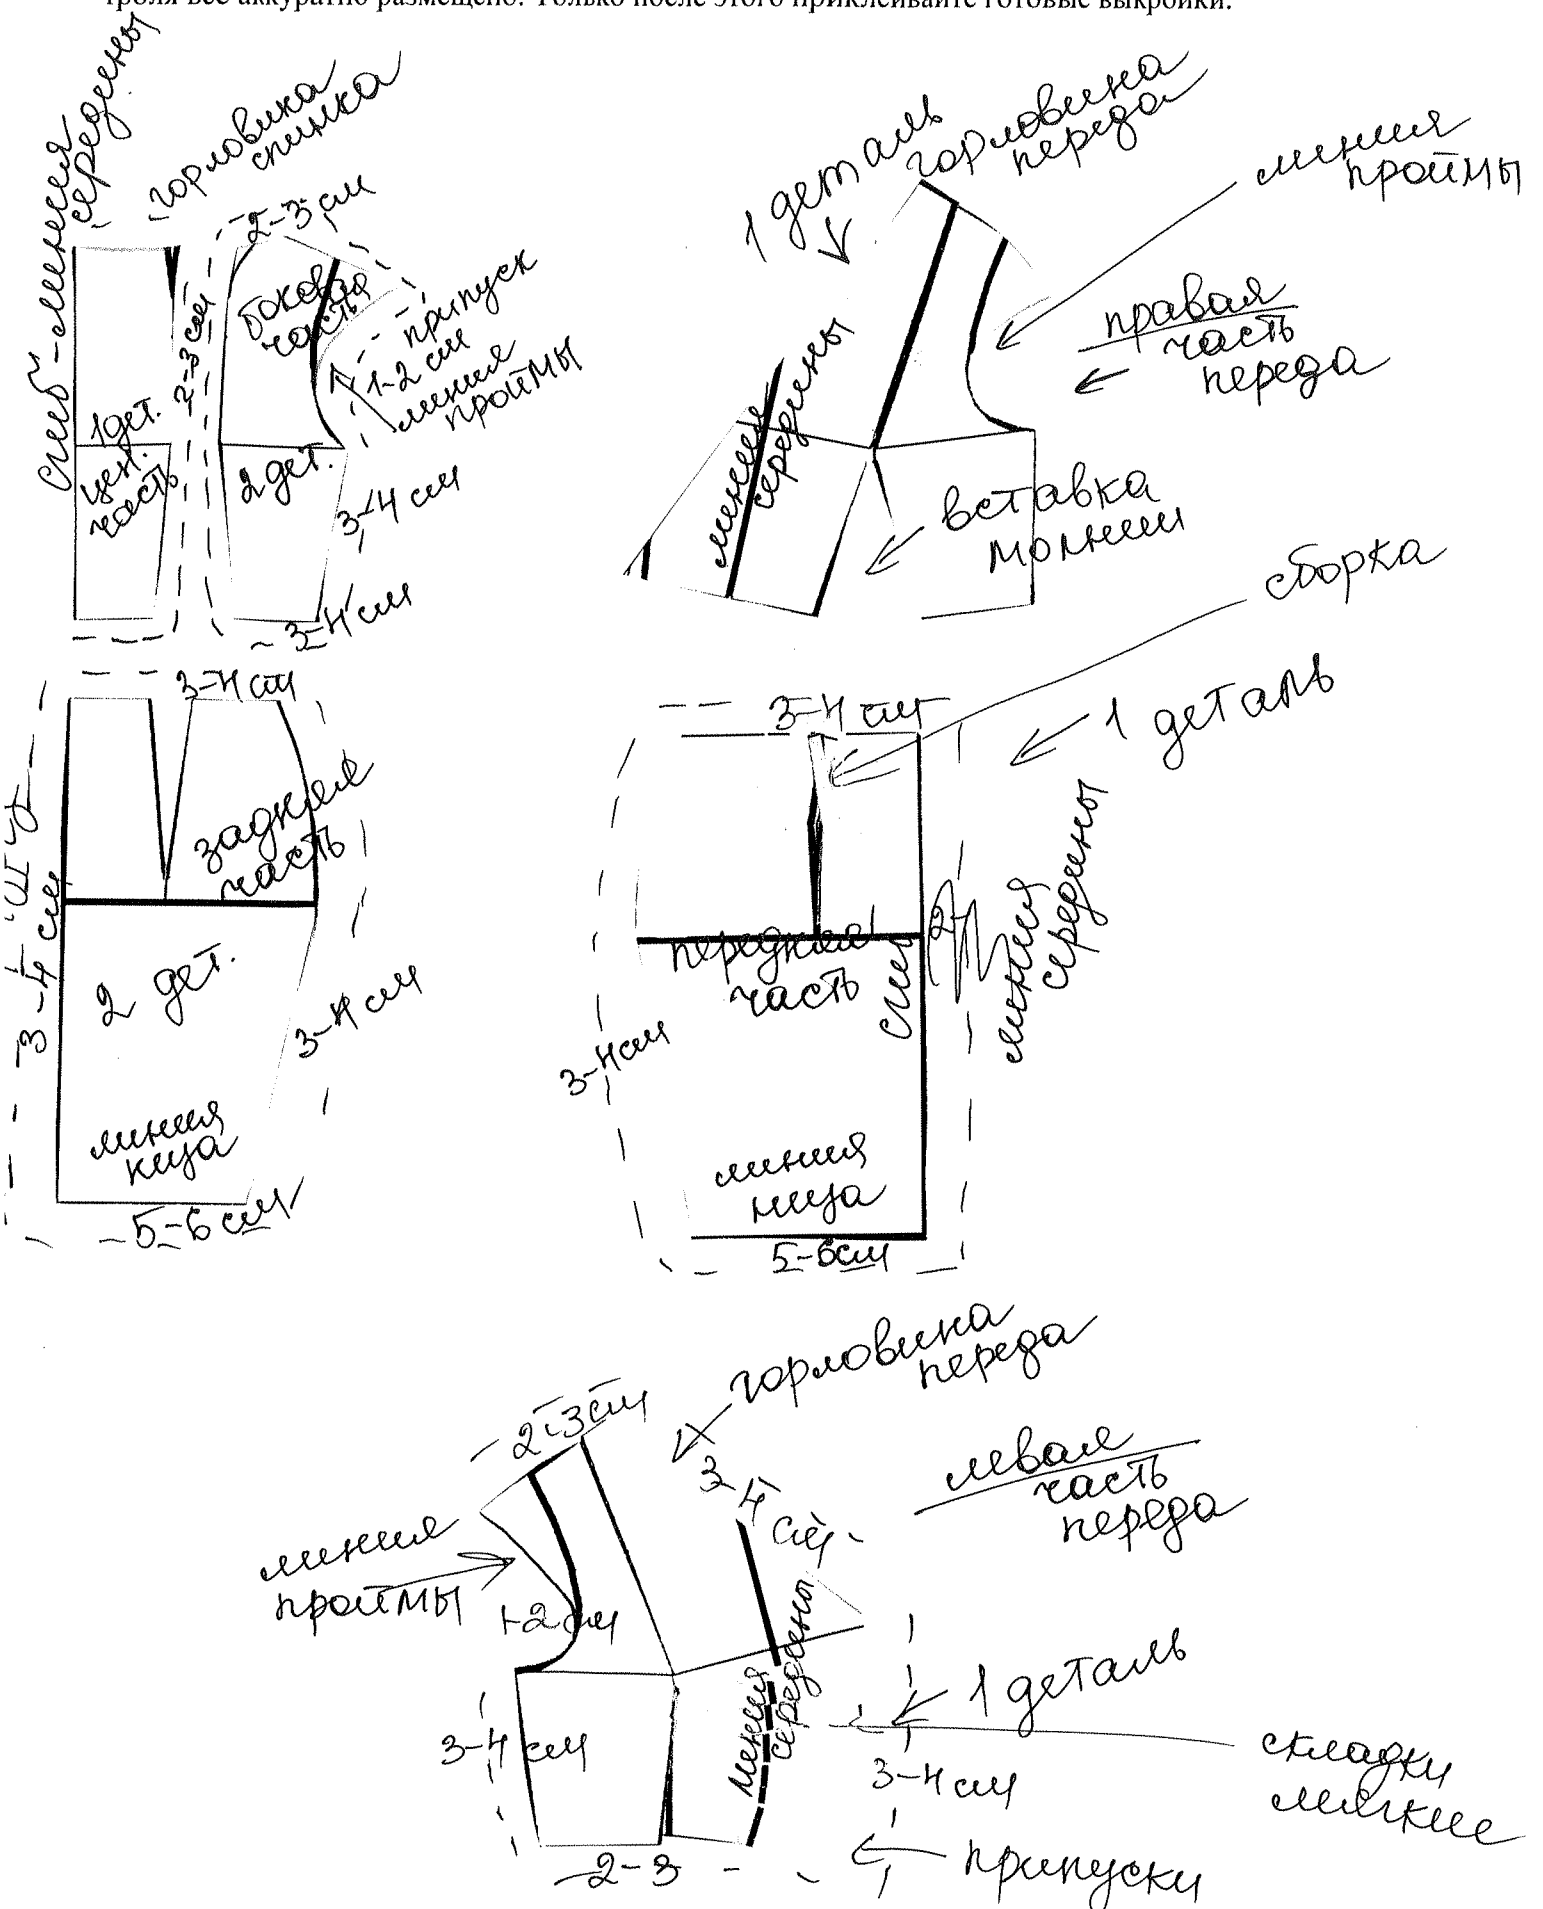 троля все аккуратно размещено. Только после этого приклеивайте готовые выкройки.
сгиб-линия
середины
горловина
спинка
2-3 см
боковая
часть
припуск
1-2 см
линия
проймы
2-3 см
1 дет.
цен.
часть
2 дет.
3-4 см
3-4 см
1 деталь
горловина
переда
линия
проймы
правая
часть
переда
линия
середины
вставка
молнии
сборка
3-4 см
задняя
часть
3-4 см
2 дет.
3-4 см
линия
низа
5-6 см
3-4 см
1 деталь
передняя
часть
линия
середины
3-4 см
линия
низа
5-6 см
горловина
переда
2-3 см
3-4
см
левая
часть
переда
линия
проймы
1-2 см
линия
середины
1 деталь
3-4 см
3-4 см
складки
мягкие
2-3
припуски